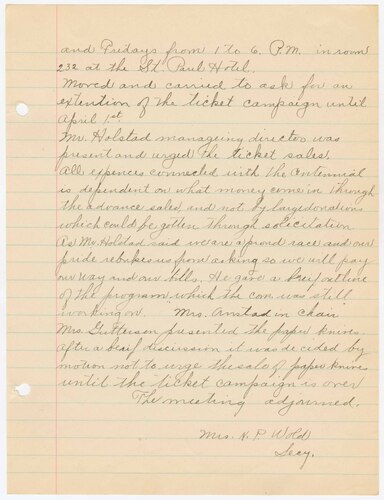 and Fridays from 1 to 6. P.M. in room
232 at the St. Paul Hotel.
Moved and carried to ask for an
extention of the ticket campaign until
April 1st.
Mr. Holstad manageing director was
present and urged the ticket sales.
All expences connected with the Centennial
is dependent on what money come in through
the advance sales, and not by large donations
which could be gotten through solicitation
As Mr. Holstad said we are a proud race and our
pride rebukes us from asking so we will pay
our way and our bills. He gave a breif outline
of the program, which the com. was still
working on. Mrs. Anstad in chair
Mrs. Guttersen presented the paper knives.
After a breif discussion it was decided by
motion not to urge the sale of paper knives
until the ticket campaign is over
The meeting adjurned.
Mrs. K. P. Wold
Secy.